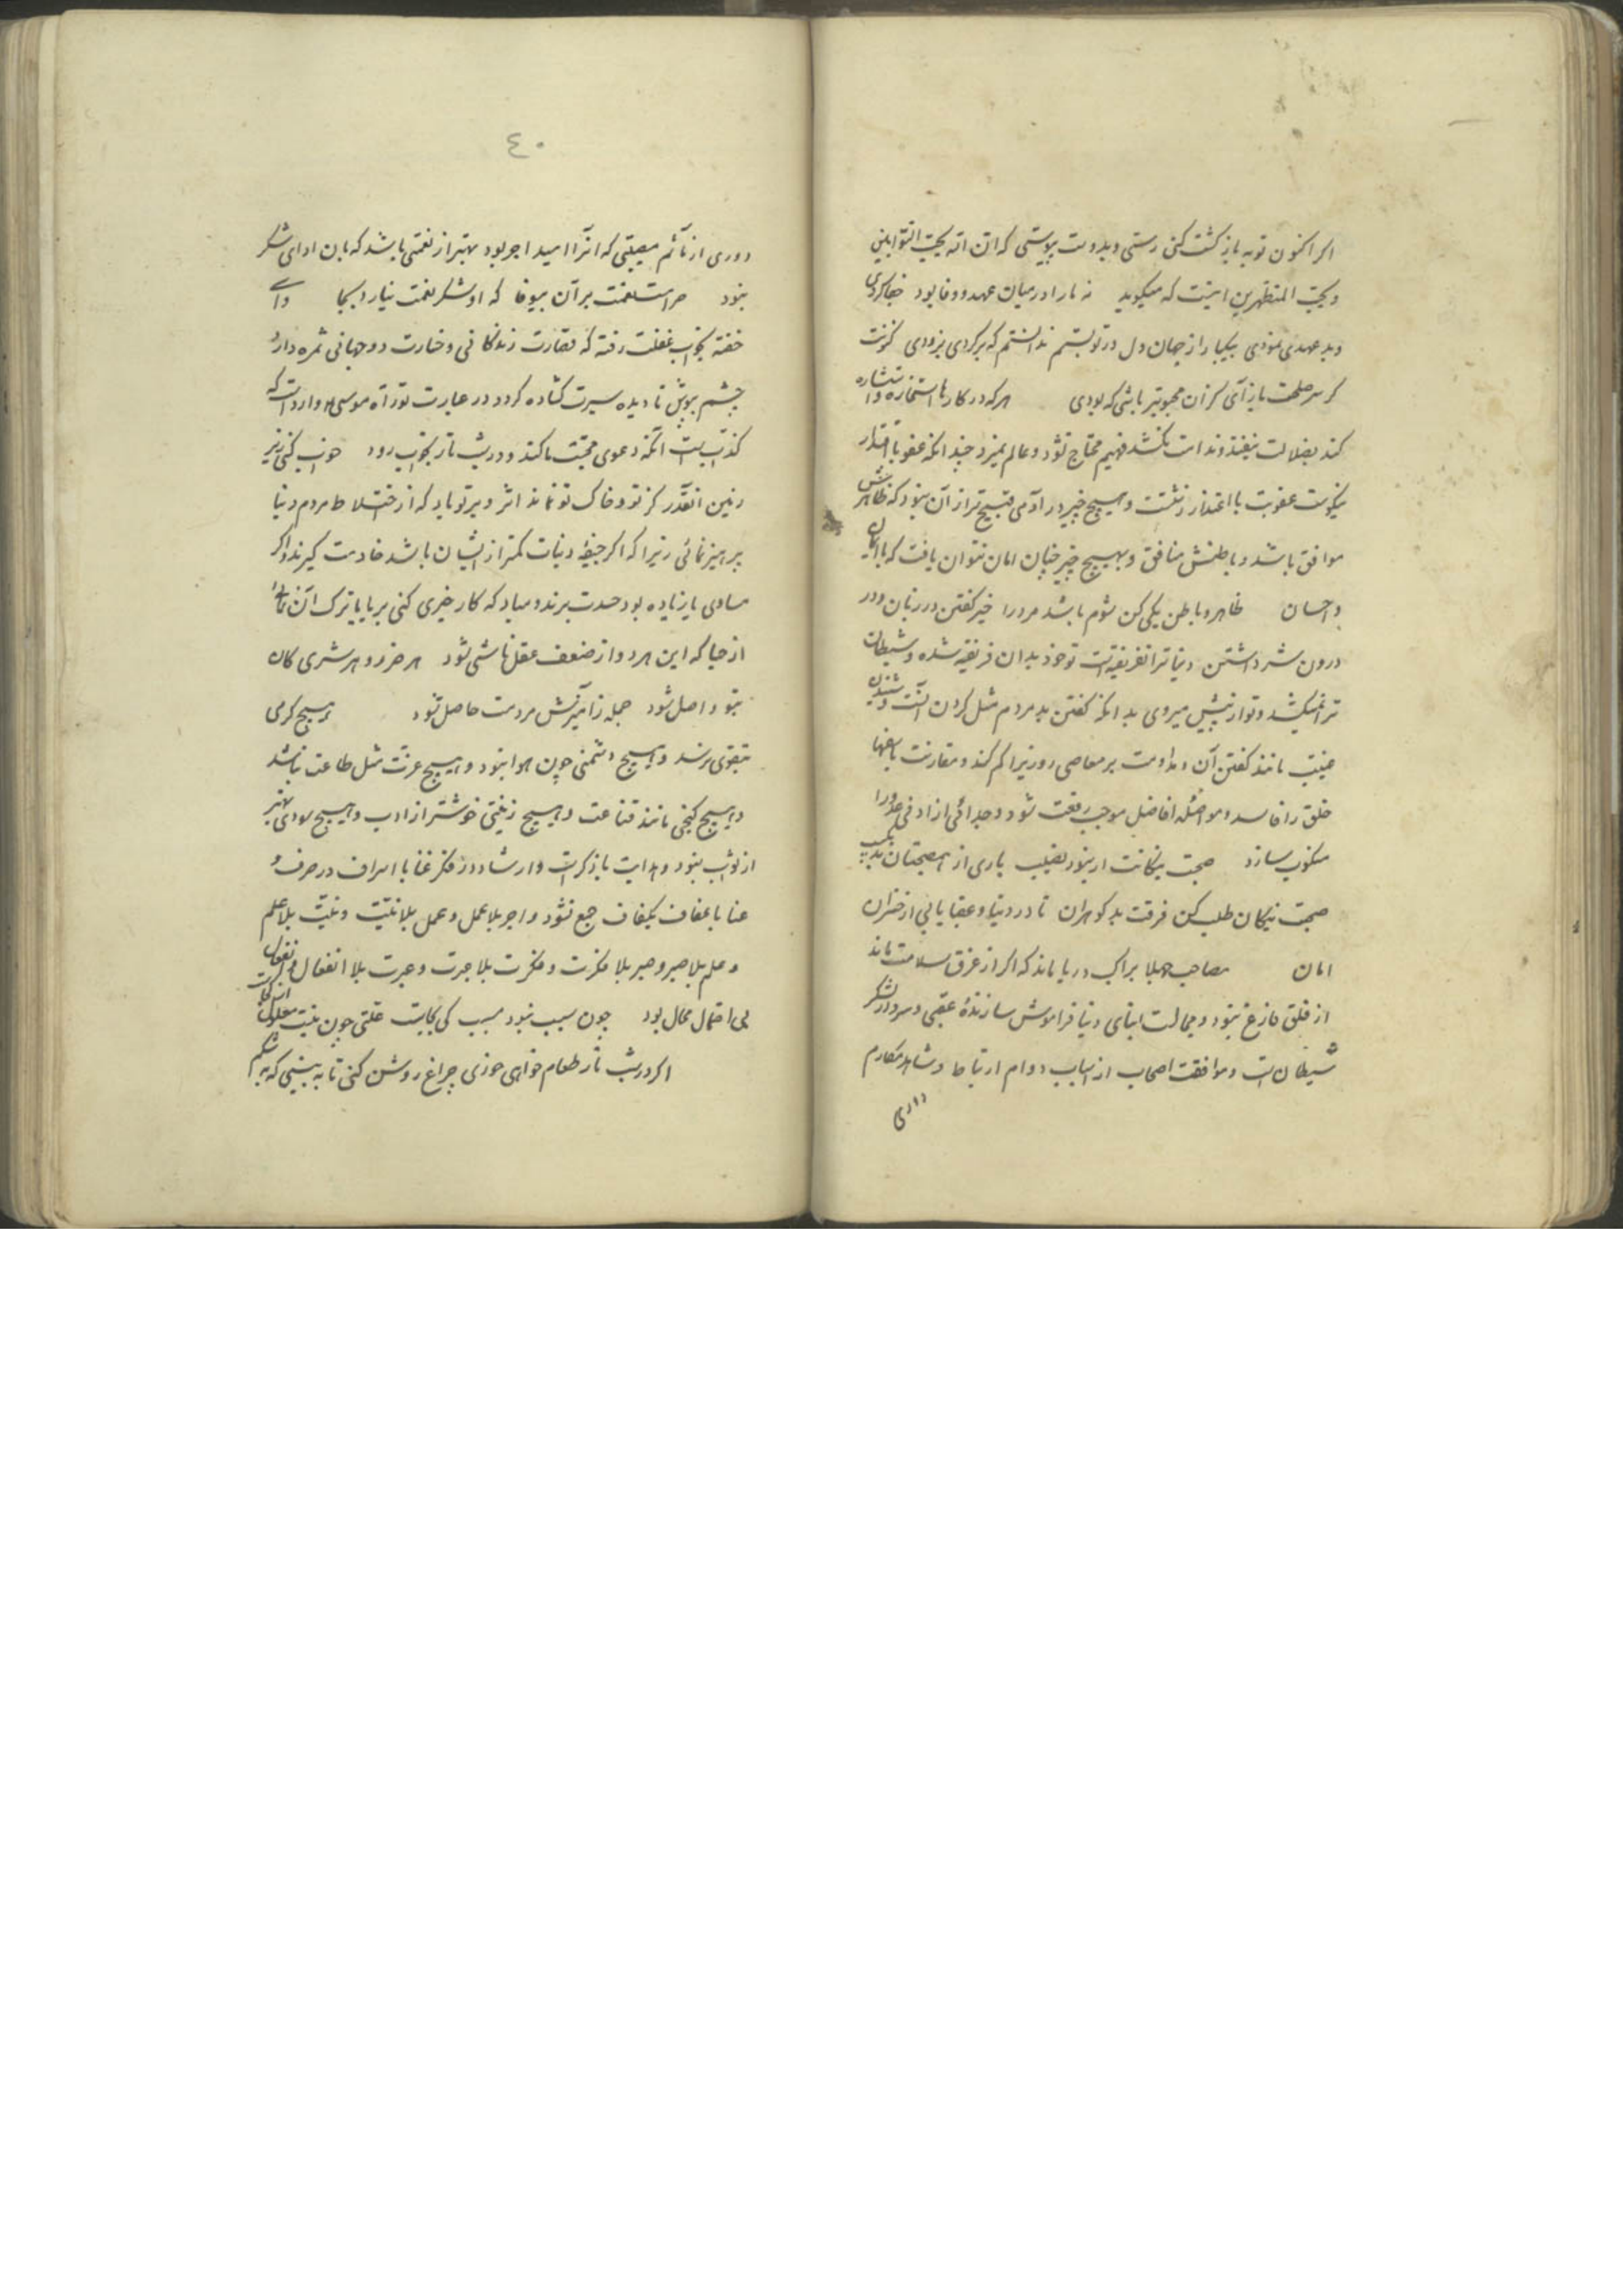 اگر اکنون توبه باز کشت کنی رستی و بدوست پیوستی که ان الله یحب التوابین
و یحب المتطهرین اینست که میکوید نه مارا در میان عهد و وفا بود جفا کردی
و بد عهدی نمودی بیکبار از جهان دل در تو بستم ندانستم که برکردی بزودی کرت
کر سر صلحت باز آی کزان محبوبتر باشی که بودی هرکه در کارها استخاره و استشاره
کند بضلالت نیفتد و ندامت نکشد فهیم محتاج نشود و عالم نمیرد چندانکه عفو با اقتدار
نیکوست عقوبت با اعتذار زشتست و هیچ چیز در آدمی قبیح تر از آن نبود که ظاهرش
موافق باشد و باطنش منافق و بهیچ چیز چنان امان نتوان یافت که با ایمان
و احسان ظاهر و باطن یکی کن شوم باشد مرد را خیر کفتن در زبان و در
درون شر داشتن دنیا ترا نفریفته است تو خود بدان فریفته شده و شیطانت
ترا نمیکشد و تو از پیش میروی بدانکه کفتن بد مردم مثل کردن آنست و شنیدن
غیبت مانند کفتن آن مداومت بر معاصی روزی را کم کند و مقارنت با سفها
خلق را فاسد و مواصله افاضل موجب رفعت شود و جدائی از ادنی عدو را
منکوب سازد صحبت نیکانت ار نبود نصیب باری از همصحبتان بد
صحبت نیکان طلب کن فرقت بد کوهران تا در دنیا و عقبا یابی از خسران
امان مصاحب جهلا براکب دریا ماند که اگر از غرق سلامت ماند
از قلق فارغ نبود و مجالست ابنای دنیا فراموش سازنده عقبی و سردار لشکر
شیطان است و موافقت اصحاب از اسباب دوام ارتباط و شاهد مکارم
داری
٤٠
دوری از مآثم مصیبتی که انرا امید اجر بود بهتر از نعمتی باشد که بان ادای شکر
نبود حرامست نعمت بر آن بیوفا که او شکر نعمت نیارد بجا وای
خفته بخواب غفلت رفته که نضارت زندکانی و خسارت دو جهانی ثمره دارد
چشم بپوش تا دیده سیرت کشاده کردد در عبارت توراة موسی وارد است که
کذاب است آنکه دعوی محبت ما کند و در شب تار بخواب رود خواب کنی زیر
زمین انقدر کز تو و خاک تو نماند اثر و بر تو باد که از اختلاط مردم دنیا
پرهیز نمائی زیرا که اگر جیفه دنیات کمتر از ایشان باشد خادمت کیرند و اگر
مساوی یا زیاده بود حسدت برند و مباد که کار خیری کنی بریا یا ترک آن نمائی
از حیا که این هر دو از ضعف عقل ناشی شود هر ضرر و هر شری کان
بتو واصل شود جمله ز آمیزش مردمت حاصل شود هیچ کرمی
بتقوی نرسد و هیچ دشمنی چون هوا نبود و هیچ عزت مثل طاعت نباشد
و هیچ کنجی مانند قناعت و هیچ زینتی خوشتر از ادب و هیچ سودی بهتر
از ثواب نبود و هدایت با ذکر است و ارشاد در فکر غنا با اسراف در صرف و
عنا با عفاف بکفاف جمع نشود و اجر بلا عمل و عمل بلا نیت و نیت بلا علم
و علم بلا صبر و صبر بلا فکرت و فکرت بلا عبرت و عبرت بلا انفعال و انفعال
بی احتمال محال بود چون سبب نبود مسبب کی بجاست علتی چون نیست معلول از کجاست
اگر در شب تار طعام خواهی خوری چراغ روشن کنی تا به بینی که بشکم